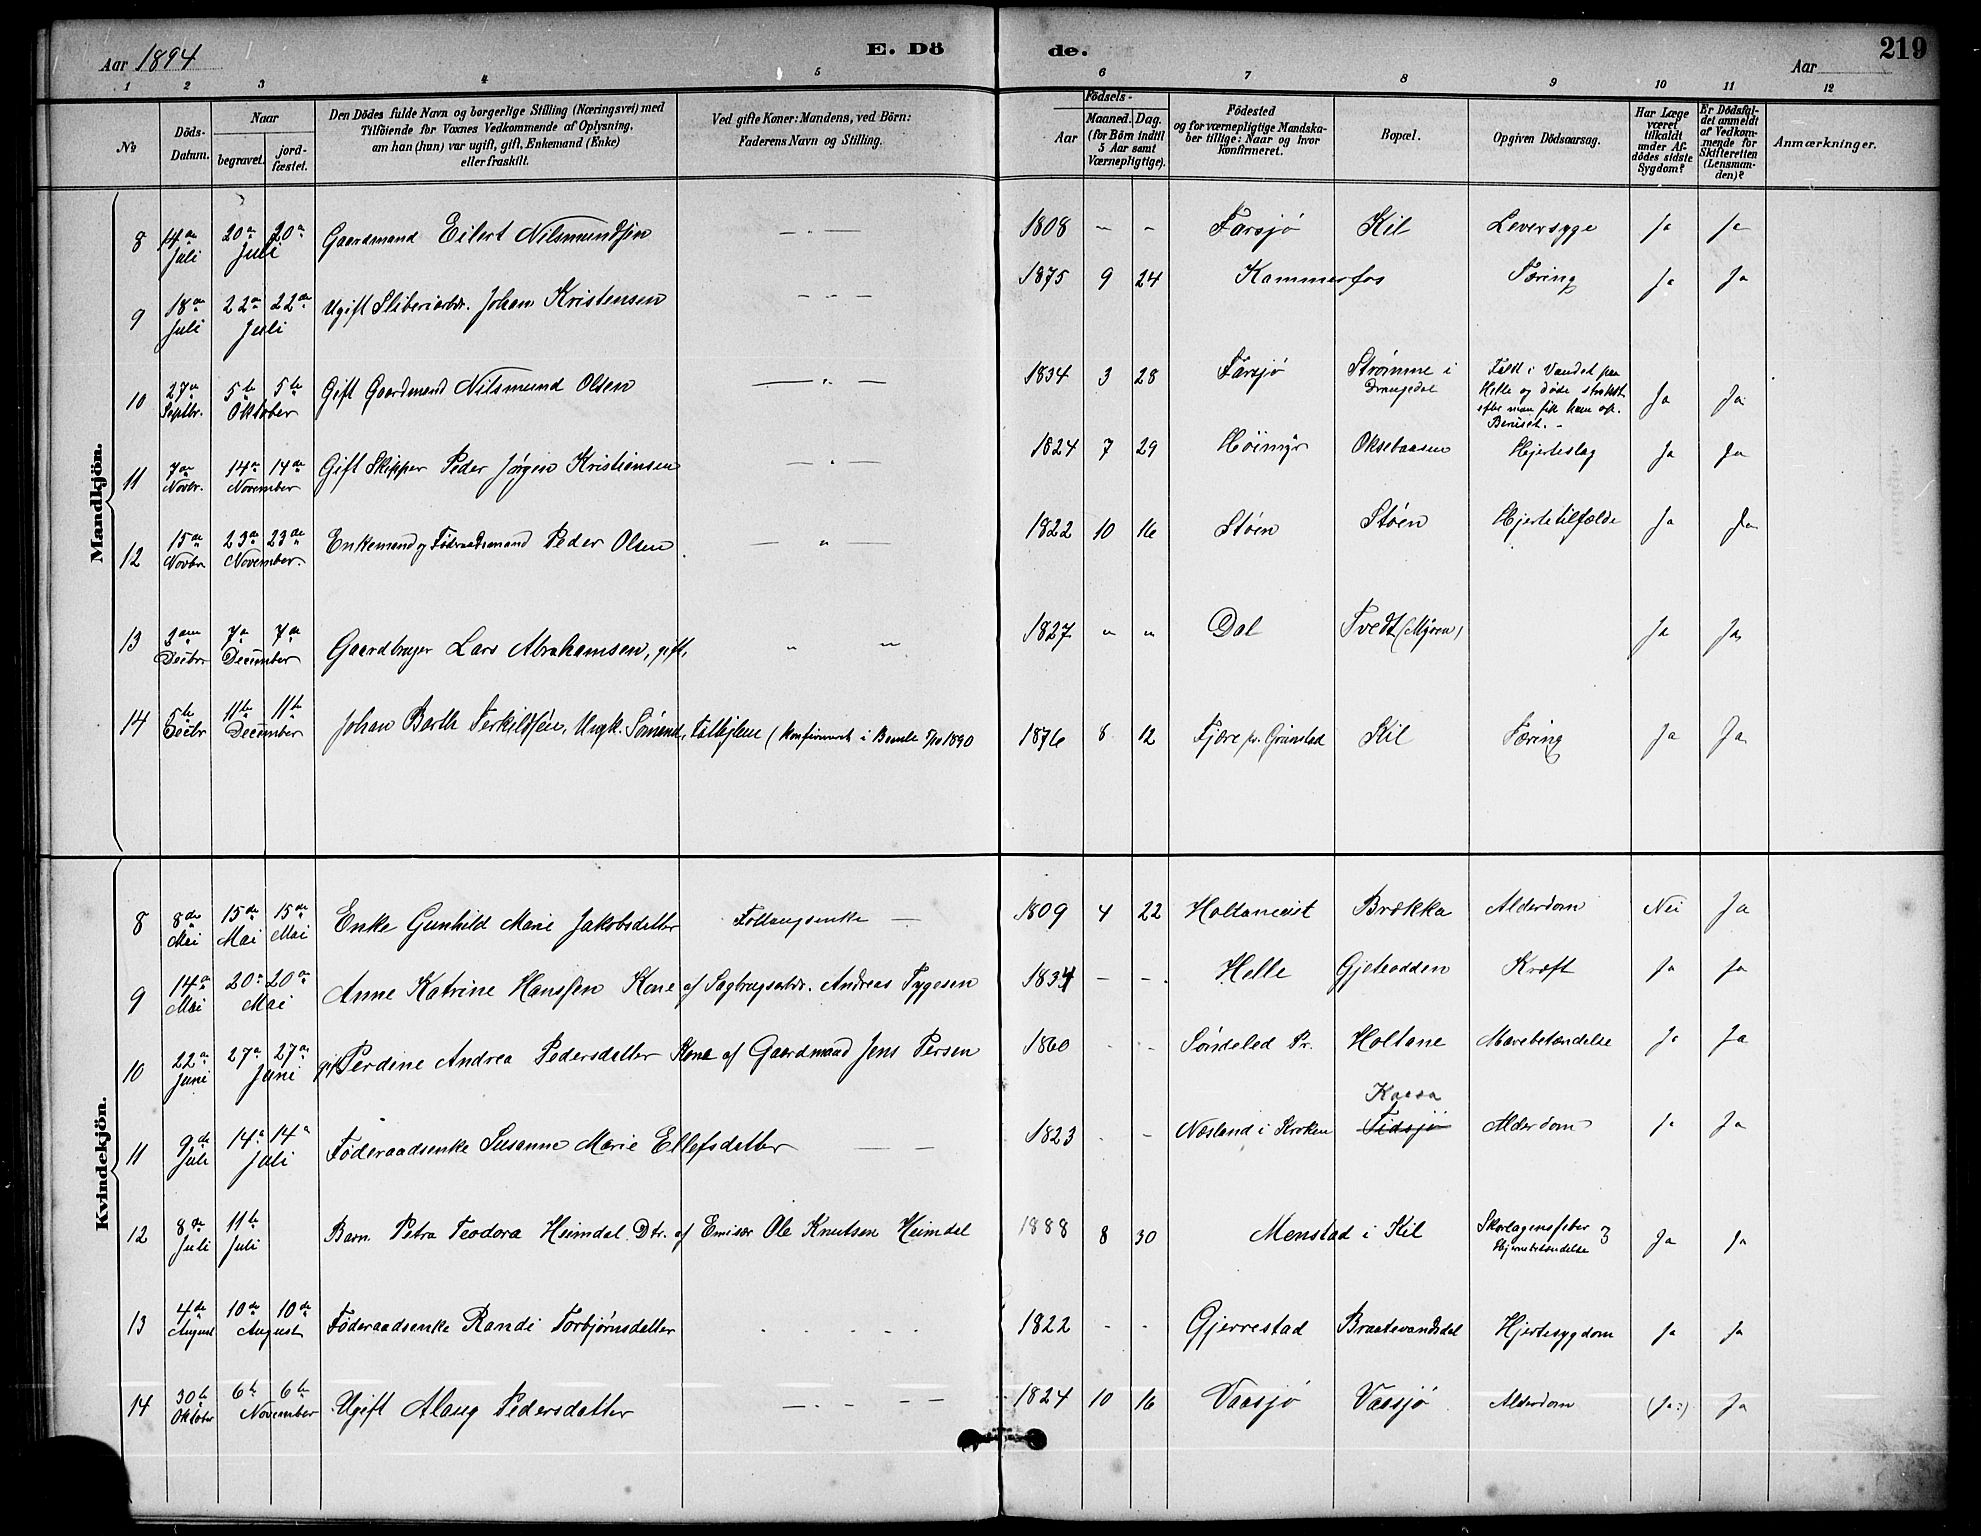 Aar 1894
E. Dö
de.
Aar
219
1 2 3 4 5 6 7 8 9 10 11 12
No
Döds-Datum.
Naar
begravet. jord-fæstet.
Den Dödes fulde Navn og borgerlige Stilling (Næringsvei) med
Tilföiende for Voxnes Vedkommende af Oplysning,
om han (hun) var ugift, gift, Enkemand (Enke)
eller fraskilt.
Ved gifte Koner: Mandens, ved Börn:
Faderens Navn og Stilling.
Födsels-
Aar
Maaned. Dag.
(for Börn indtil
5 Aar samt
Værnepligtige).
Födested
og for værnepligtige Mandska-
ber tillige: Naar og hvor
konfirmeret.
Bopæl.
Opgiven Dödsaarsag.
Har Læge
været
tilkaldt
under Af-
dödes sidste
Sygdom?
Er Dödsfal-
det anmeldt
af Vedkom-
mende for
Skifteretten
(Lensman-
den)?
Anmærkninger.
Mandkjön.
8 14de Juli 20de 20de Juli Gaardmand Eilert Nilsmundsen — " — 1808 — — Farsjø Kil Leversyge Ja Ja
9 18de Juli 22de 22de Juli Ugift Sliberiarbdr. Johan Kristensen — " — 1875 9 24 Kammerfos Tæring Ja Ja
10 27de Septbr. 5te 5te Oktober Gift Gaardmand Nilsmund Olsen — " — 1834 3 28 Farsjø Strømme i Drangedal Faldt i Vandet paa
Helle og døde strakst
efter man fik ham op.
Ja Ja
11 7de Novbr. 14de 14de November Gift Skipper Peder Jørgen Kristiansen — " — 1824 7 29 Høimyr Oksebaasen Hjerteslag Ja Ja
12 15de Novbr 23de 23de November. Enkemand og Føderaadsmand Peder Olsen. — " — 1822 10 16 Støen Støen Hjertetilfælde Ja Ja
13 Decbr 7de 7de December Gaardbruger Lars Abrahamsen, gift, " " 1827 " " Dal Tvedt (Myren) Ja Ja
14 5te Decbr 11te 11te December Johan Barth Terkildsen, Ungk. Sømand, (Konfirmeret i Bamle 5/10 1890 1876 8 12 Fjære pr. Grimstad Kil Tæring Ja Ja
Kvindekjön.
8 8de Mai 15de Mai 15de Mai Enke Gunhild Marie Jakobsdatter — 1809 4 22 Holtanevist Brækka Alderdom Nei Ja
9 14de Mai 20de 20de Mai Anne Katrine Hanssen Kone af Sagbrugsarbdr. Andreas Tygesen 1834 — — Helle Gjeteodden Kræft Ja Ja
10 22de Juni 27de 27de Juni gift Perdine Andrea Pedersdatter Kone af Gaardmand Jens Persen 1860 - - Søndeled Pr. Holtane Mavebetændelse Ja Ja
11 9de Juli 14de 14de Juli Føderaadsenke Susanne Marie Ellefsdatter — — 1823 - - Næsland i Kroken Kaasa
Tidsjø Alderdom Ja Ja
12 8de Juli 11te Juli Barn Petra Teodora Heimdal Dtr. af Emisær Ole Knutsen Heimdal 1888 8 30 Menstad i Kil Skarlagensfeber og
Hjernebetændelse Ja Ja
13 4de August 10de 10de August Føderaadsenke Randi Torbjørnsdatter - - - - 1822 - - Gjerrestad Braatevandsdal Hjertesygdom Ja Ja
14 30te Oktober 6te 6te November Ugift Alaug Pedersdatter — - - — 1824 10 16 Vaasjø Vaasjø Alderdom (Ja:) Ja